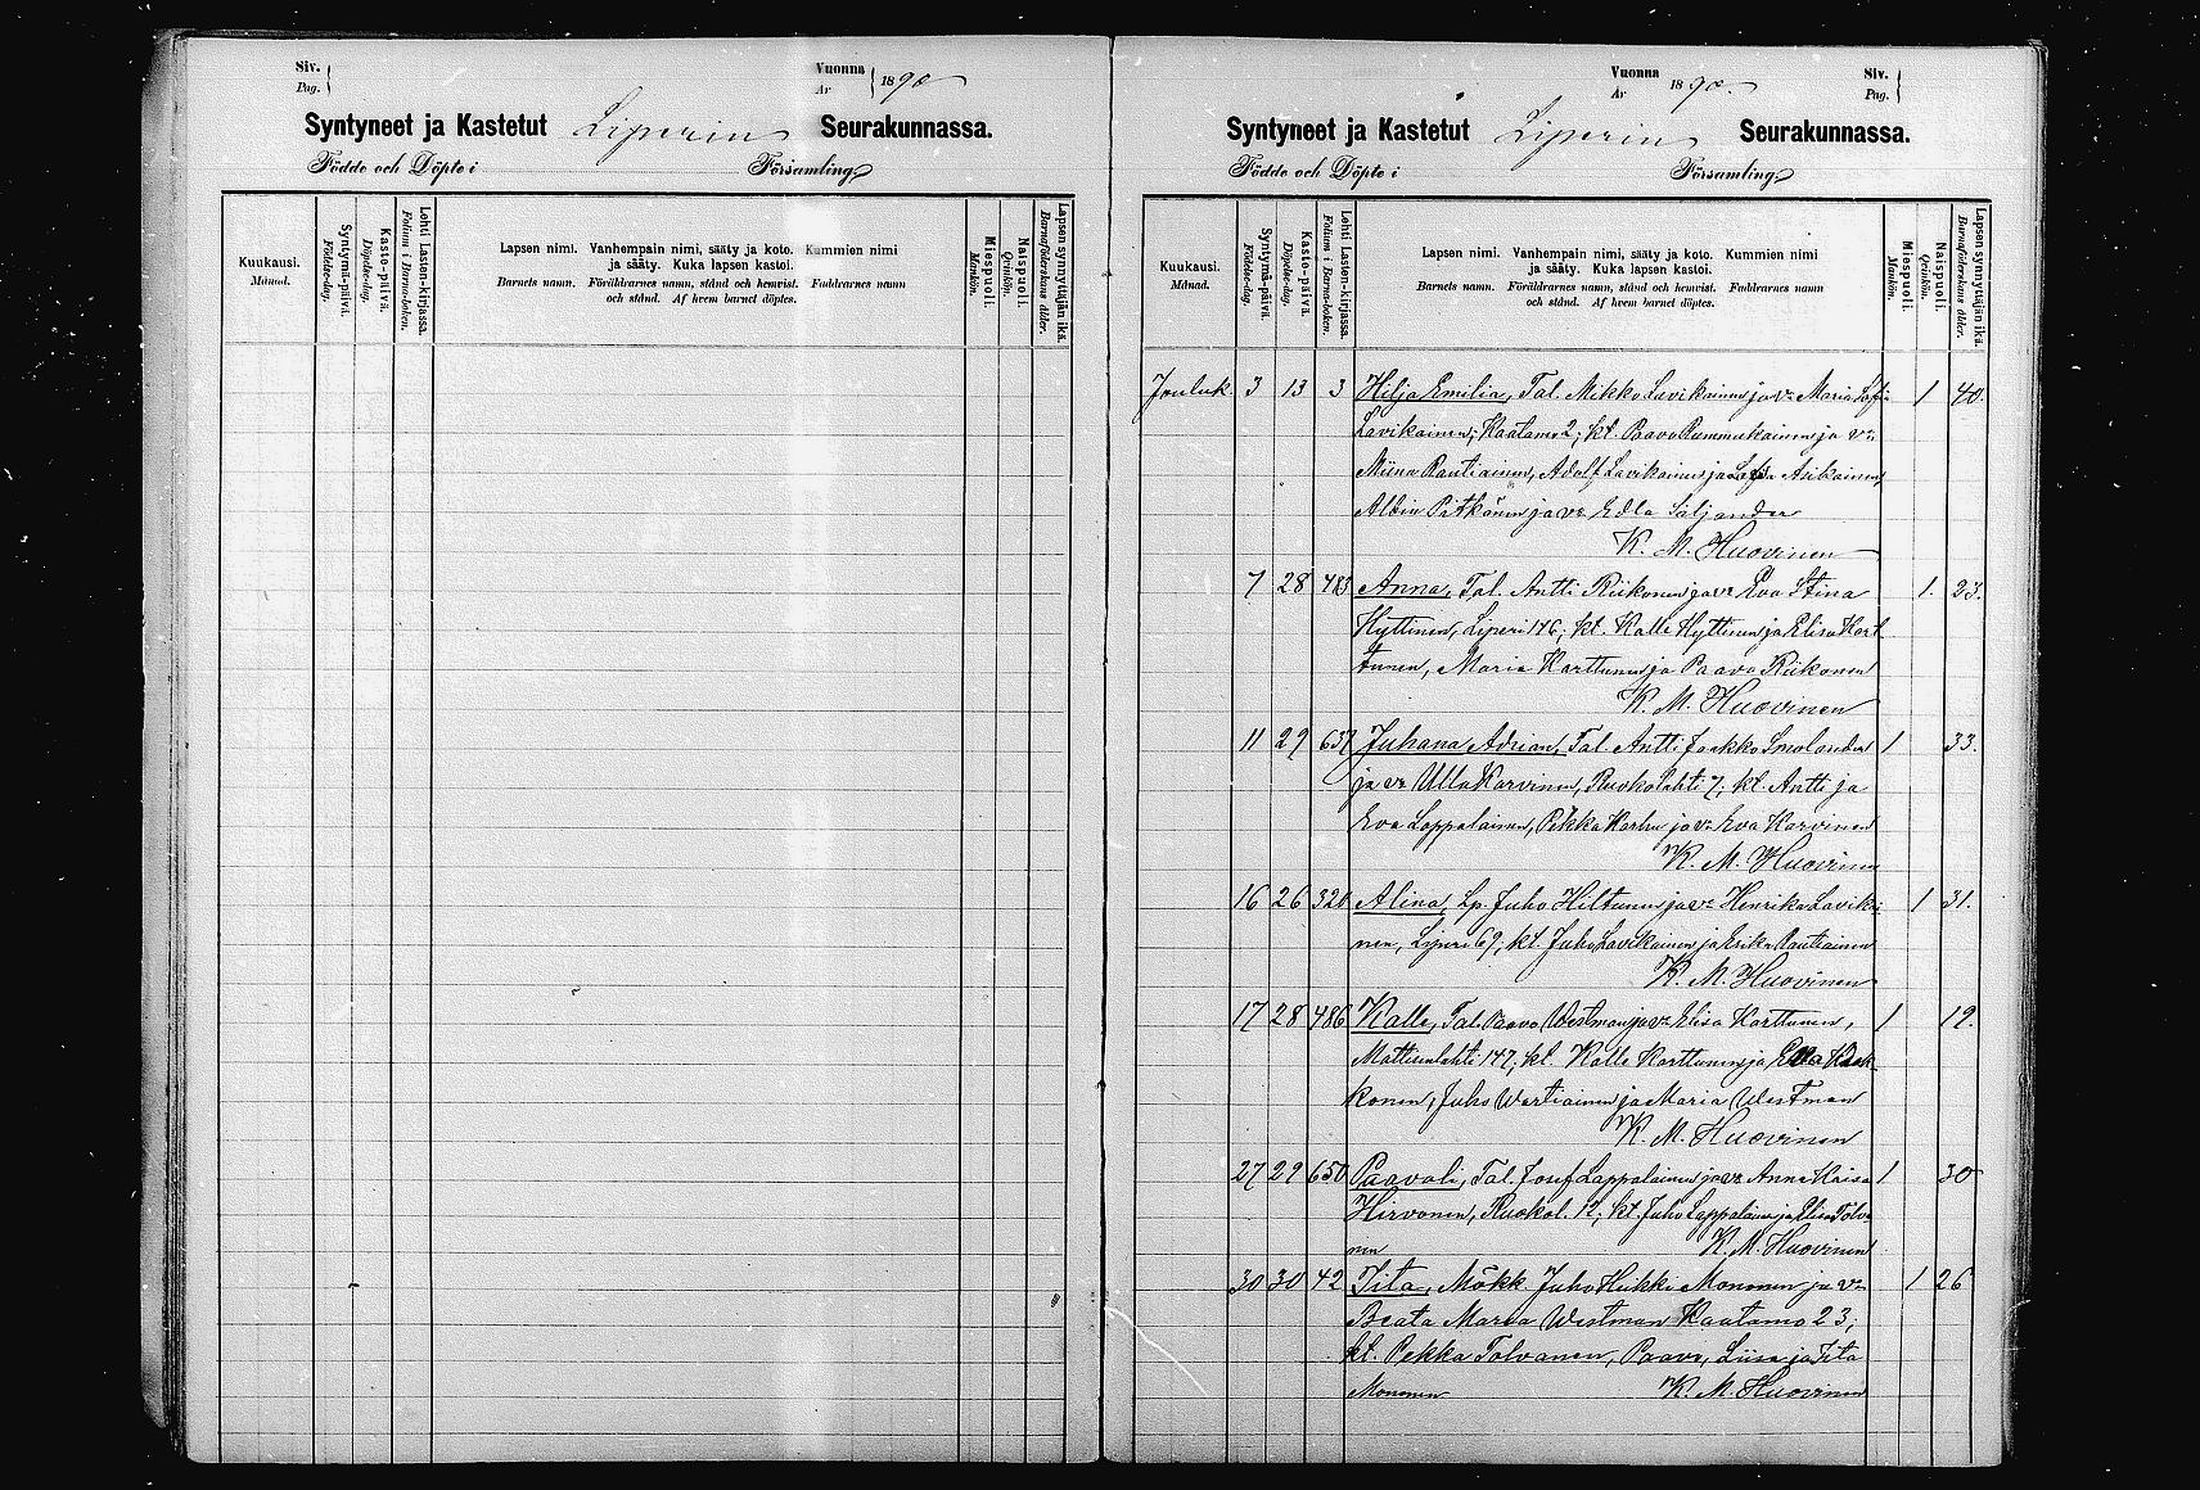 Siv.
Pag.
Vuonna
År
1890
Syntyneet ja Kastetut Liperin Seurakunnassa.
Födde och Döpte i Församling
Kuukausi.
Månad.
Syntymä-päivä.
Födelse-dag.
Kasto-päivä.
Döpelse-dag.
Lehti Lasten-kirjassa.
Folium i Barna-boken.
Lapsen nimi. Vanhempain nimi, sääty ja koto. Kummien nimi
ja sääty. Kuka lapsen kastoi.
Barnets namn. Föräldrarnes namn, stånd och hemvist. Faddrarnes namn
och stånd. Af hvem barnet döptes.
Miespuoli.
Mankön.
Naispuoli.
Qvinkön.
Lapsen synnyttäjän ikä.
Barnaföderskans ålder.
Vuonna
År
1890.
Siv.
Pag.
Syntyneet ja Kastetut Liperin Seurakunnassa.
Födde och Döpte i Församling
Kuukausi.
Månad.
Syntymä-päivä.
Födelse-dag.
Kasto-päivä.
Döpelse-dag.
Lehti Lasten-kirjassa.
Folium i Barna-boken.
Lapsen nimi. Vanhempain nimi, sääty ja koto. Kummien nimi
ja sääty. Kuka lapsen kastoi.
Barnets namn. Föräldrarnes namn, stånd och hemvist. Faddrarnes namn
och stånd. Af hvem barnet döptes.
Miespuoli.
Mankön.
Naispuoli.
Qvinkön.
Lapsen synnyttäjän ikä.
Barnaföderskans ålder.
Jouluk. 3 13 3 Hilja Emilia, Tal. Mikko Lavikainen ja vo Maria Sofia 1 40.
Lavikainen, Kaatamo 2; kt. Paavo Rummukainen ja vo
Miina Rautiainen, Adolf Lavikainen ja Asikainen,
Albin Pitkänen ja vo Edla Siljander
K. M. Huovinen
7 28 483 Anna, Tal. Antti Riikonen ja vo Eva Stina 1. 23.
Hyttinen, Liperi 146; kt. Kalle Hyttinen ja Elisa Kart
tunen, Maria Karttunen ja Paavo Riikonen
K. M. Huovinen
11 29 637 Juhana Adrian, Tal. Antti Jaakko Smolander 1 33.
ja vo Ulla Karvinen, Ruokolahti 7; kt. Antti ja
Eva Lappalainen, Pekka Karhu ja vo Eva Karvinen
K. M. Huovinen
16 26 320 Alina, Lp. Juho Hiltunen ja vo Henrika Lavikai 1 31.
nen, Liperi 69; kt. Juho Lavikainen ja Erika Rautiainen
K. M. Huovinen
17 28 486 Kalle, Tal. Paavo Westman ja vo Elisa Karttunen, 1 19.
Mattisenlahti 147; kt. Kalle Karttunen ja
konen, Juho Wartiainen ja Maria Westman
K. M. Huovinen
27 29 650 Paavali, Tal. Josef Lappalainen ja vo Anna Kaisa 1 30
Hirvonen, Ruokol. 12; kt. Juho Lappalainen ja Elisa Tolva
nen K. M. Huovinen
30 30 42 Tita, Mökk. Juho Heikki Mononen ja vo 1 26
Beata Maria Westman Kaatamo 23;
kt. Pekka Tolvanen, Paavo, Liisa ja Tita
Mononen K. M. Huovinen